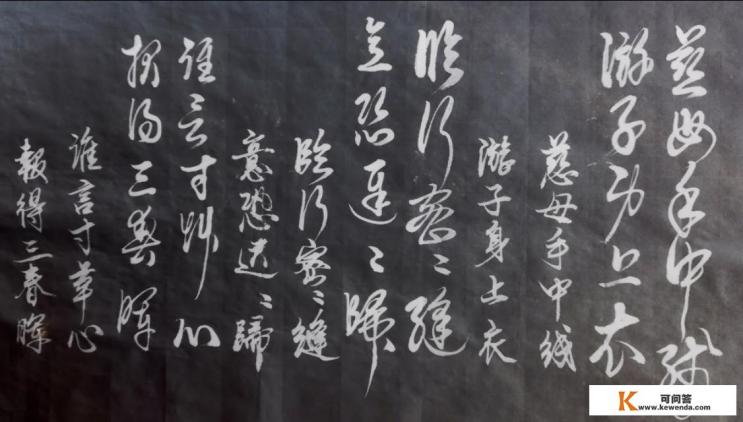 慈母手中线
游子身上衣
慈母手中线
游子身上衣
临行密〻缝
意恐迟〻归
臨行密〻縫
意恐遲〻歸
谁言寸草心
报得三春晖
誰言寸草心
報得三春暉
可问答
www.kewenda.com